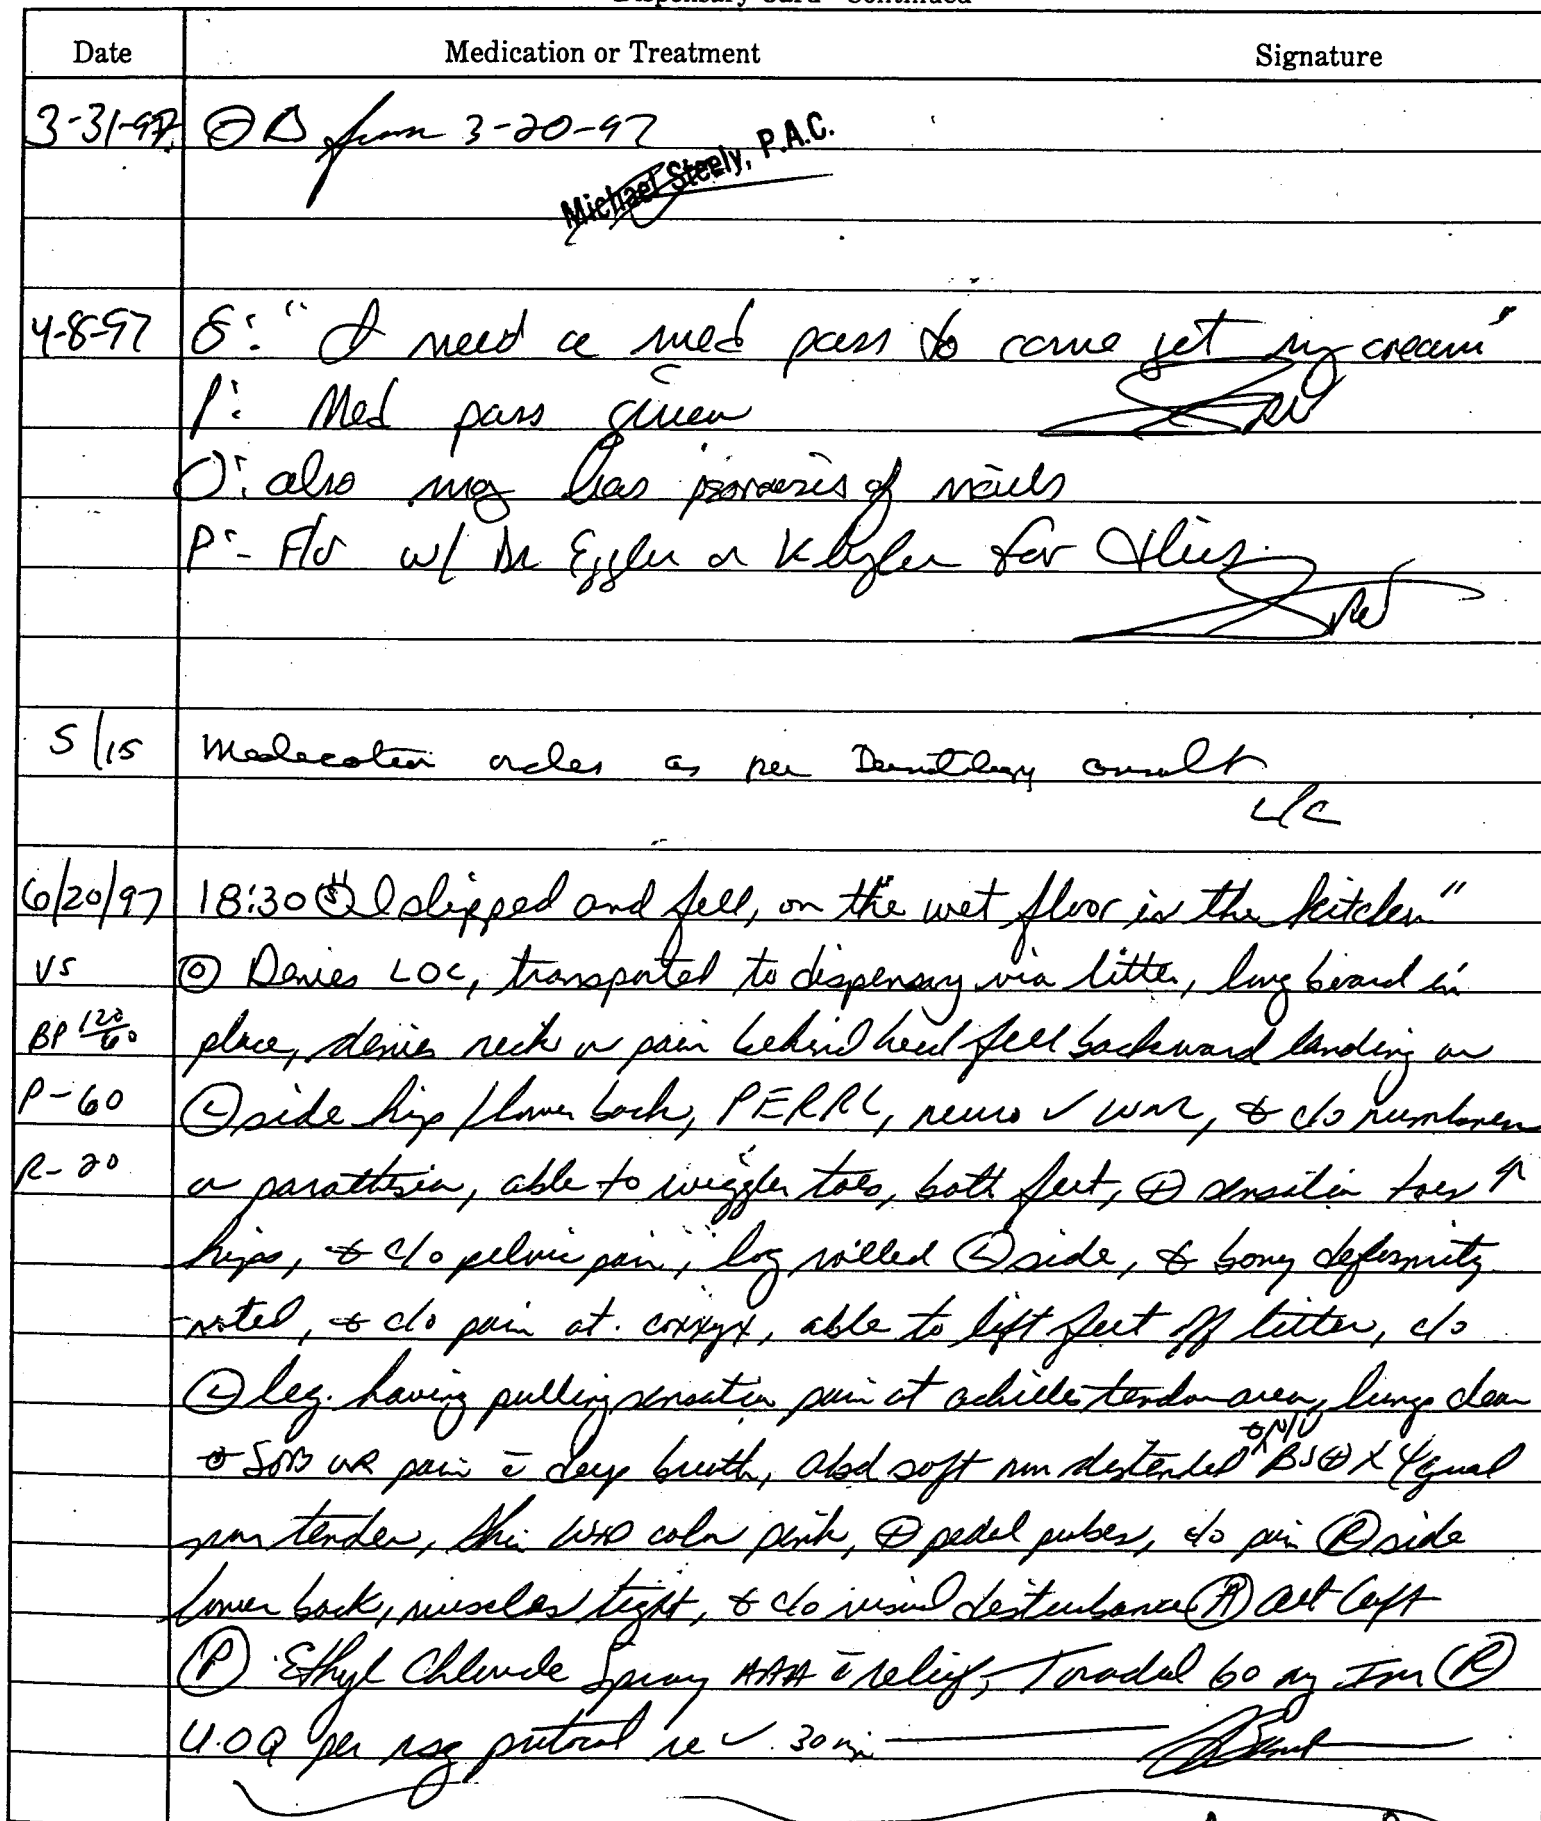 Dispensary Card - Continued
Date Medication or Treatment Signature
3-31-97 ⊖ Δ from 3-20-97
Michael Steely, P.A.C.
4-8-97 S: "I need a med pass to come get my cream"
P: Med pass given RN
O: also has psoriasis of nails
P - F/U w/ Dr Eggler or for this.
RN
5/15 Medication orders as per Dermatology consult
6/20/97 18:30 (S) "I slipped and fell, on the wet floor in the kitchen"
VS (O) Denies LOC, transported to dispensary via litter, long board in
BP 120/60 place, denies neck or pain behind head fell backward landing on
P-60 (L) side hip / lower back, PERRL, neuro ✓ WNL, ∅ c/o numbness
R-20 or parathsia, able to wiggle toes, both feet, ⊕ sensation toes ↑
hips, ∅ c/o pelvic pain, log rolled (L) side, ∅ bony deformity
noted, ∅ c/o pain at coxxyx, able to lift feet off litter, c/o
(L) leg. having pulling sensation pain at achilles tendon area, lungs clear
∅ N/V
∅ SOB or pain c̄ deep breath, abd soft non distended BS ⊕ x 4 quad
non tender, skin W+D color pink, ⊕ pedal pulses, c/o pain (R) side
lower back, muscles tight, ∅ c/o visual disturbance (A) Alt Cft
(P) Ethyl Chloride Spray AAA c̄ relief, Toradol 60 mg Im (R)
U.O.Q per nsg protocol re ✓ 30 min